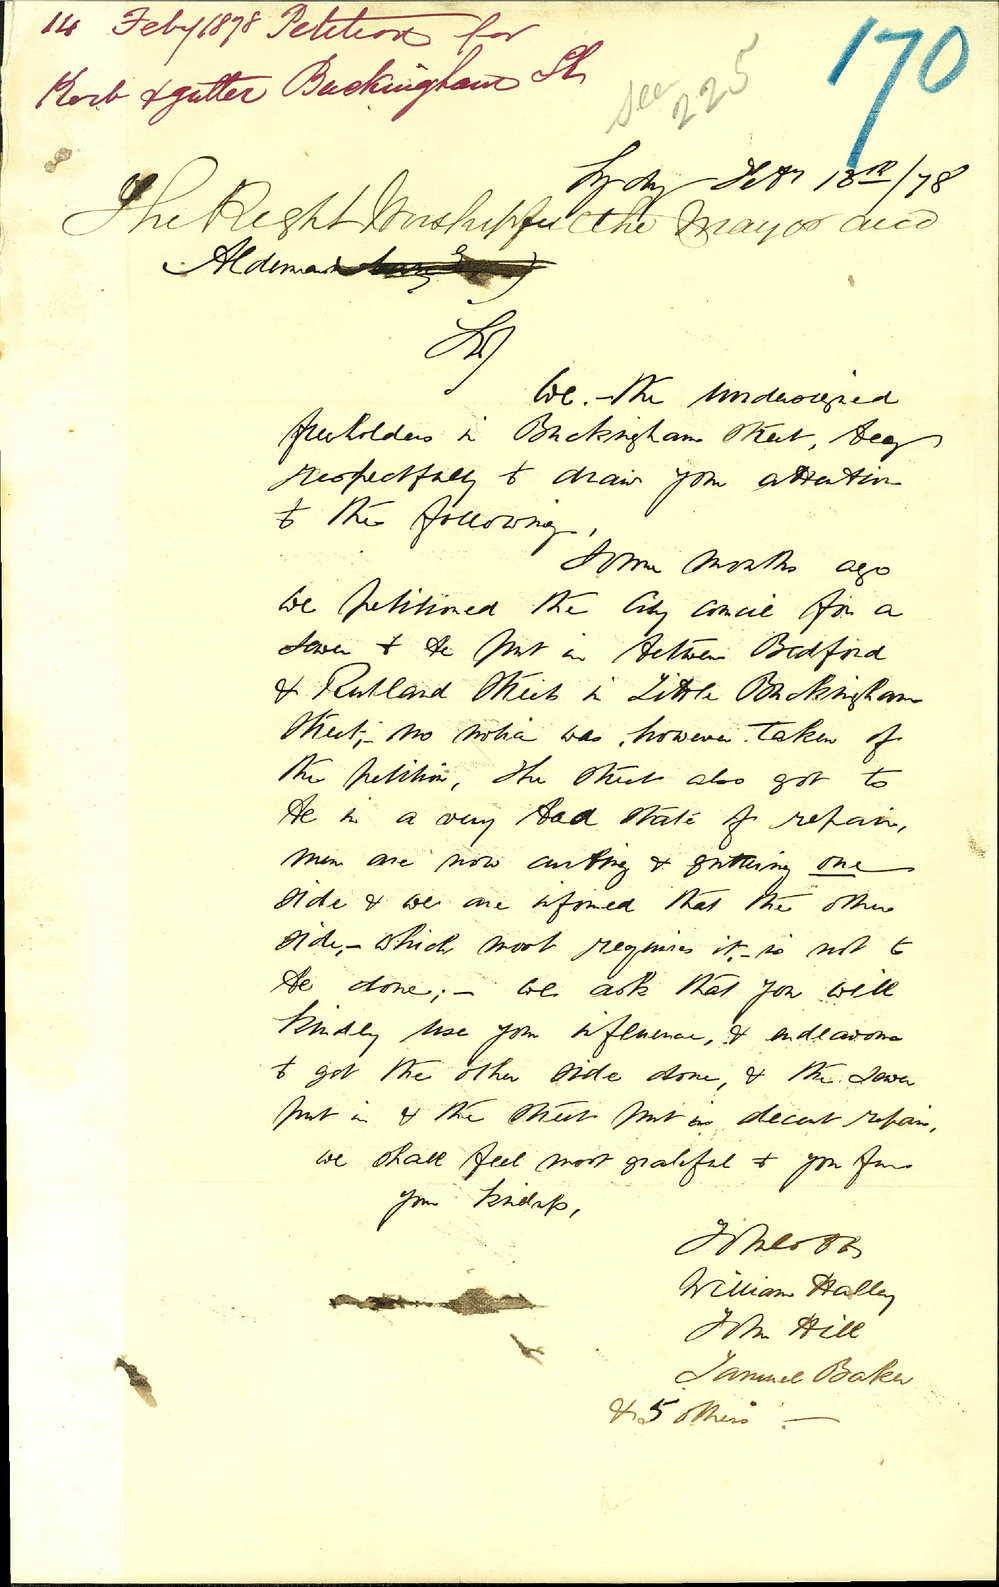 14 Feby 1878 Petition for
Kerb & gutter Buckingham St
170
see
225
Sydney Feby 13th/78
The Right Worshipful the Mayor and
Aldermen
Sir
We. - the undersigned
freeholders in Buckingham Street, beg
respectfully to draw your attention
to the following,
Some months ago
we petitioned the City Council for a
sewer to be put in between Bedford
& Rutland Streets in Little Buckingham
Street;- no notice was, however taken of
the petition, the street also got to
be in a very bad state of repair,
men are now curbing & guttering one
side & we are informed that the other
side,- which most requires it,- is not to
be done; - we ask that you will
kindly use your influence, & endeavour
to get the other side done, & the sewer
put in & the street put in decent repair,
we shall feel most grateful to you for
your kindness,
William Halley
John Hill
Samuel Baker
& 5 others -